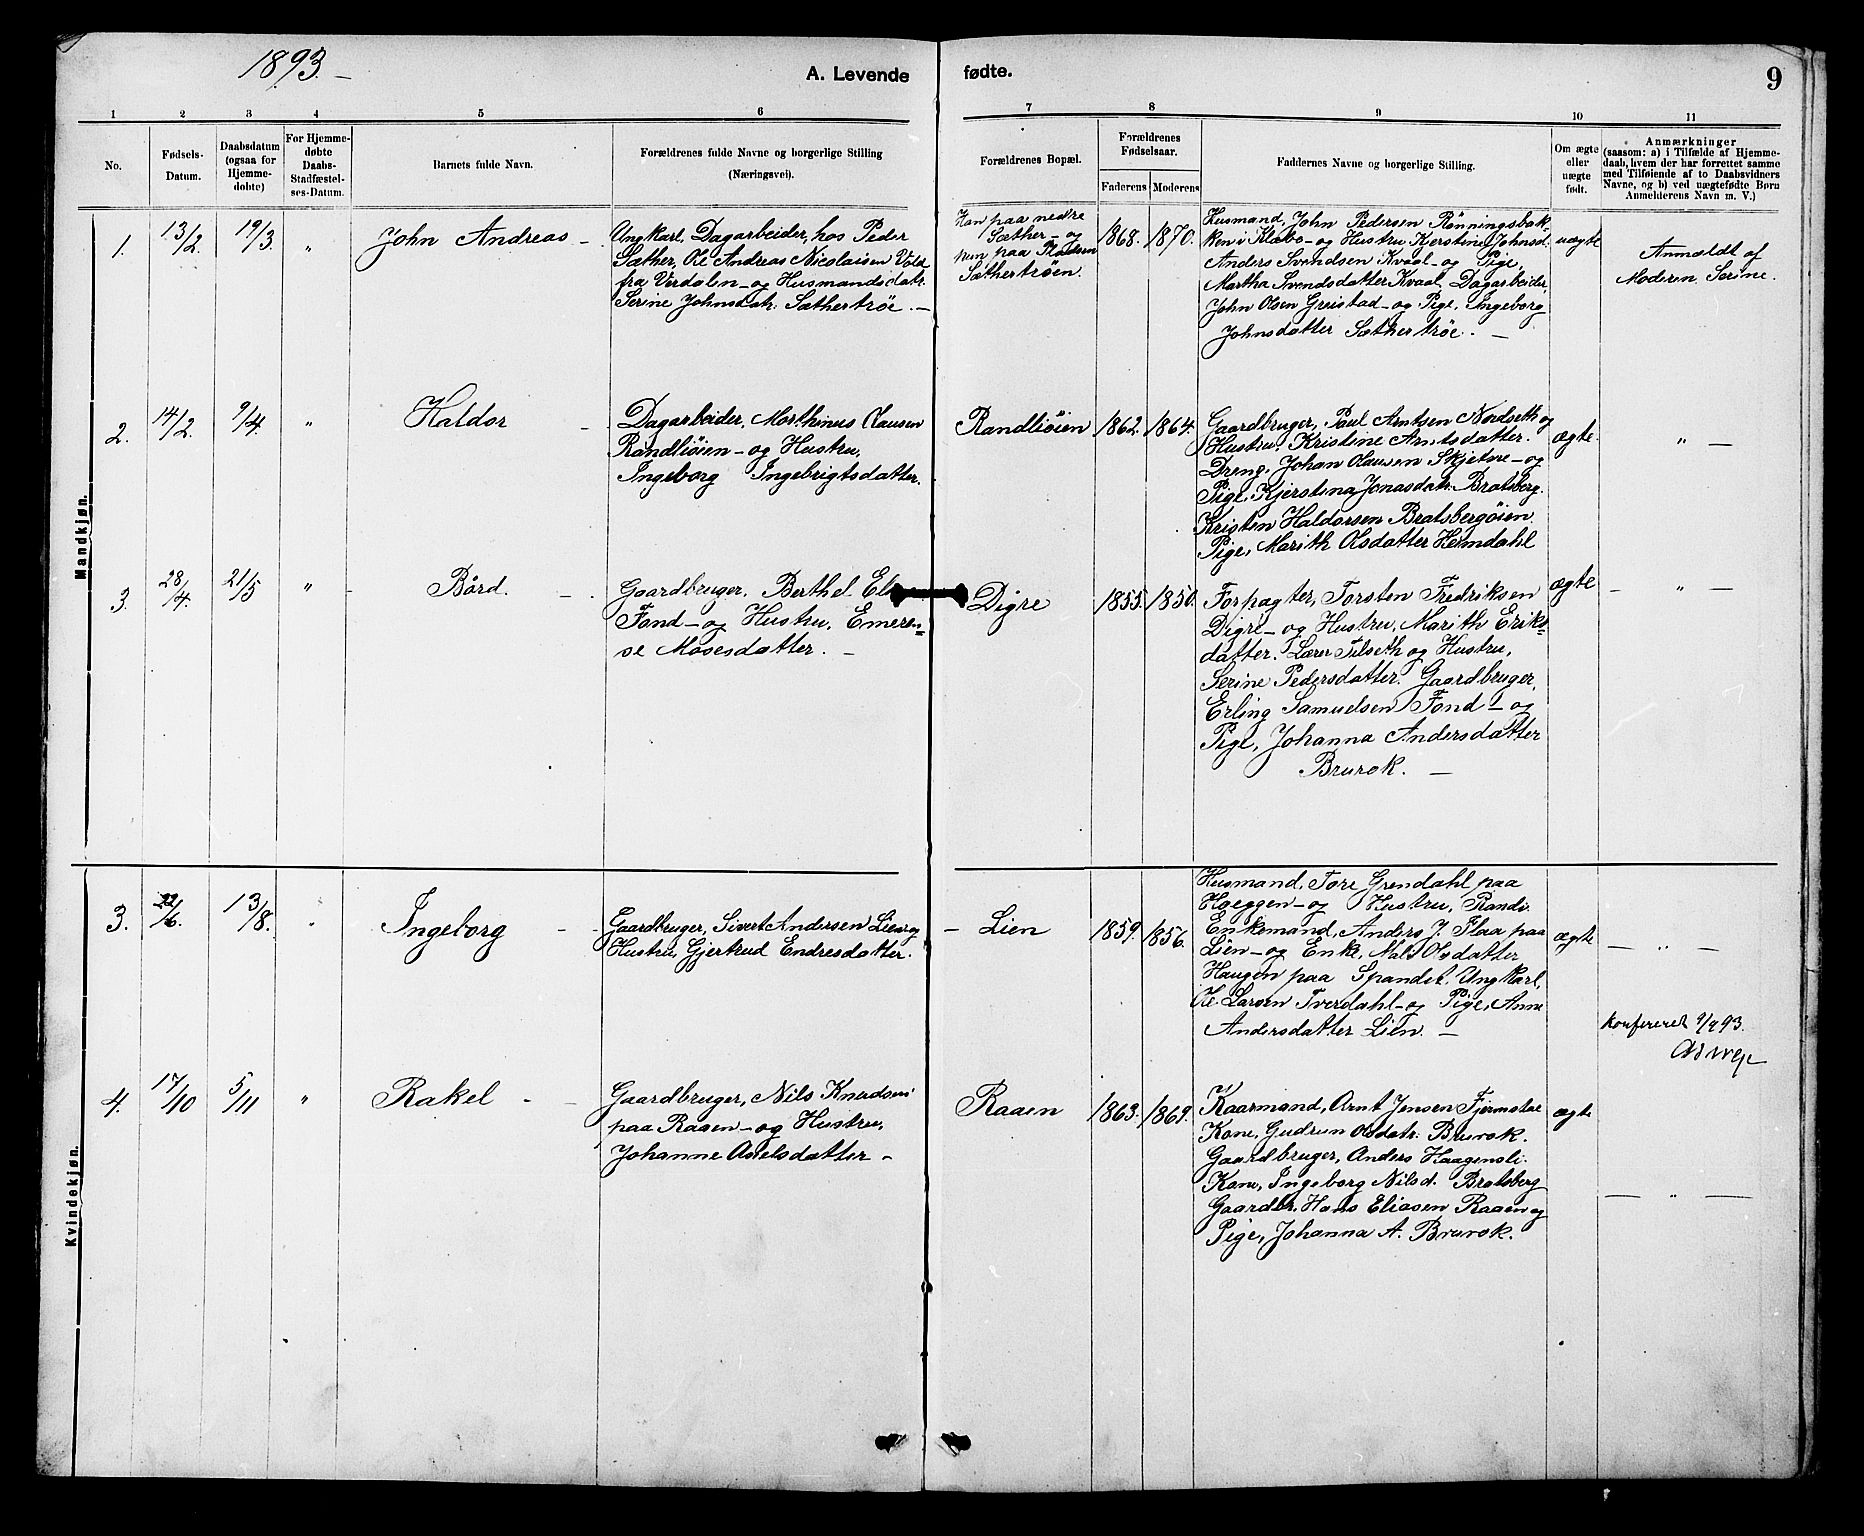 1893.
A. Levende fødte.
9
1 2 3 4 5 6 7 8 9 10 11
No.
Fødsels-
Datum.
Daabsdatum
(ogsaa for
Hjemme-
døbte)
For Hjemme-
døbte
Daabs-
Stadfæstel-
ses-Datum.
Barnets fulde Navn.
Forældrenes fulde Navne og borgerlige Stilling
(Næringsvei).
Forældrenes Bopæl.
Forældrenes
Fødselsaar.
Faderens Moderens
Faddernes Navne og borgerlige Stilling.
Om ægte
eller
uægte
født.
Anmærkninger
(saasom: a) i Tilfælde af Hjemme-
daab, hvem der har forrettet samme
med Tilføiende af to Daabsvidners
Navne, og b) ved uægtefødte Børn
Anmelderens Navn m. V.)
Mandkjøn.
1. 13/2. 19/3. " John Andreas -
Ungkarl, Dagarbeider, hos Peder
Sæther, Ole Andreas Nicolaisen Vold
fra Verdalen - og Husmandsdatr.
Serine Johnsdatr. Sæthertrøe. -
Han paa nedre
Sæther - og
hun paa Pladsen
Sæthertrøen.
1868. 1870.
Husmand, John Pedersen Rønningsbak-
ken i Klæbo - og Hustru Kjerstine Johnsd.
Anders Svendsen Kvaal - og Pige,
Martha Svendsdatter Kvaal, Dagarbeider,
John Olsen Greistad - og Pige, Ingeborg
Johnsdatter Sæthertrøe. -
uægte
Anmeldt af
Moderen Serine.
2. 14/2. 9/4. " Haldor -
Dagarbeider, Morthinus Olausen
Randliøien - og Hustru,
Ingeborg Ingebrigtsdatter.
Randliøien 1862. 1864.
Gaardbruger, Paul Arntsen Nordseth og
Hustru, Kristine Arntsdatter.
Dreng, Johan Olausen Skjetne - og
Pige, Kjerstina Jonasdatr. Bratsberg.
Kristen Haldorsen Bratsbergøien.
Pige, Marith Olsdatter Heimdahl
ægte. " -
3. 28/4. 21/5 " - Bård. -
Gaardbruger, Berthel
Fond - og Hustru, Emeren-
se Mosesdatter. -
Digre 1855. 1850.
Forpagter, Torsten Fredriksen
Digre - og Hustru, Marith Eriks-
datter. Lærer Tilseth og Hustru,
Serine Pedersdatter. Gaardbruger,
Erling Samuelsen Fond - og
Pige, Johanna Andersdatter
Brurok. -
ægte - " -
Kvindekjøn.
3. 22/6. 13/8. " Ingeborg - -
Gaardbruger, Sivert Andersen Lien og
Hustru, Gjertrud Endresdatter.
- Lien 1859. 1856.
Husmand, Tore Grendahl paa
Hoeggen - og Hustru, Randi.
Enkemand, Anders J. Flaa paa
Lien - og Enke, Mali Olsdatter
Haugen paa Spandet. Ungkarl,
Ole Larsen Tverdahl - og Pige, Anne
Andersdatter Lien. -
ægte - " -
Konfereret 9/9 93.
4. 17/10 5/11 " Rakel - -
Gaardbruger, Nils Knudsen
paa Raaen - og Hustru,
Johanne Axelsdatter -
Raaen 1863. 1869.
Kaarmand, Arnt Jensen Fjermstae
Kone, Gudrun Olsdatr. Brurok.
Gaardbruger, Anders Haagensli.
Kone, Ingeborg Nilsd. Bratsberg
Gaardbr. Hans Eliasen Raaen og
Pige, Johanna A. Brurok.
ægte - " -